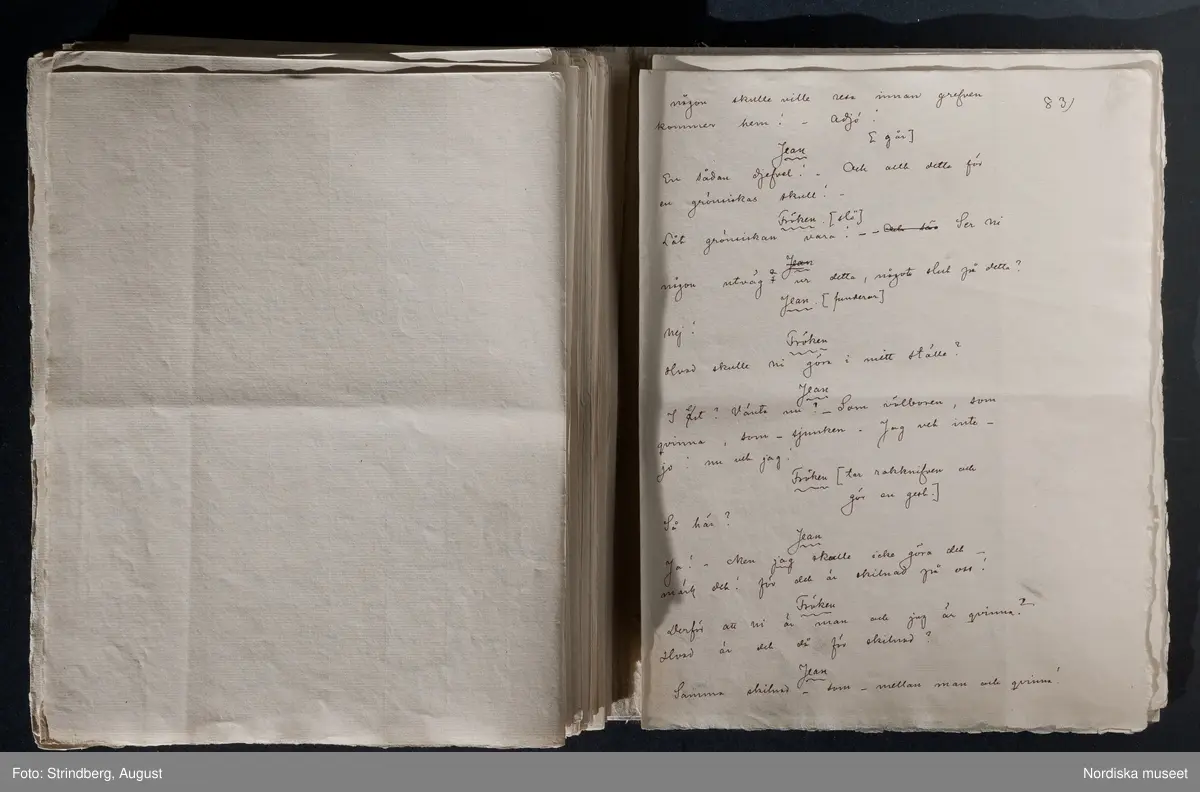 83)
någon skulle ville resa innan grefven
kommer hem! – Adjö!
[går]
Jean
En sådan djefvel! – Och allt detta för
en grönsiskas skull! –
Fröken. [slö]
Låt grönsiskan vara! – – Och Ser ni
Jean
någon utväg ur detta, något slut på detta?
Jean. [funderar]
Nej!
Fröken
Hvad skulle ni göra i mitt ställe?
Jean
I Ert? Vänta nu? – Som välboren, som
qvinna, som – sjunken. Jag vet inte –
jo! nu vet jag!
Fröken [tar rakknifven och
gör en gest.]
Så här?
Jean
Ja! – Men jag skulle icke göra det –
märk det! för det är skilnad på oss!
Fröken
Derför att ni är man och jag är qvinna?
Hvad är det då för skilnad?
Jean
Samma skilnad – som – mellan man och qvinna!
Foto: Strindberg, August
Nordiska museet